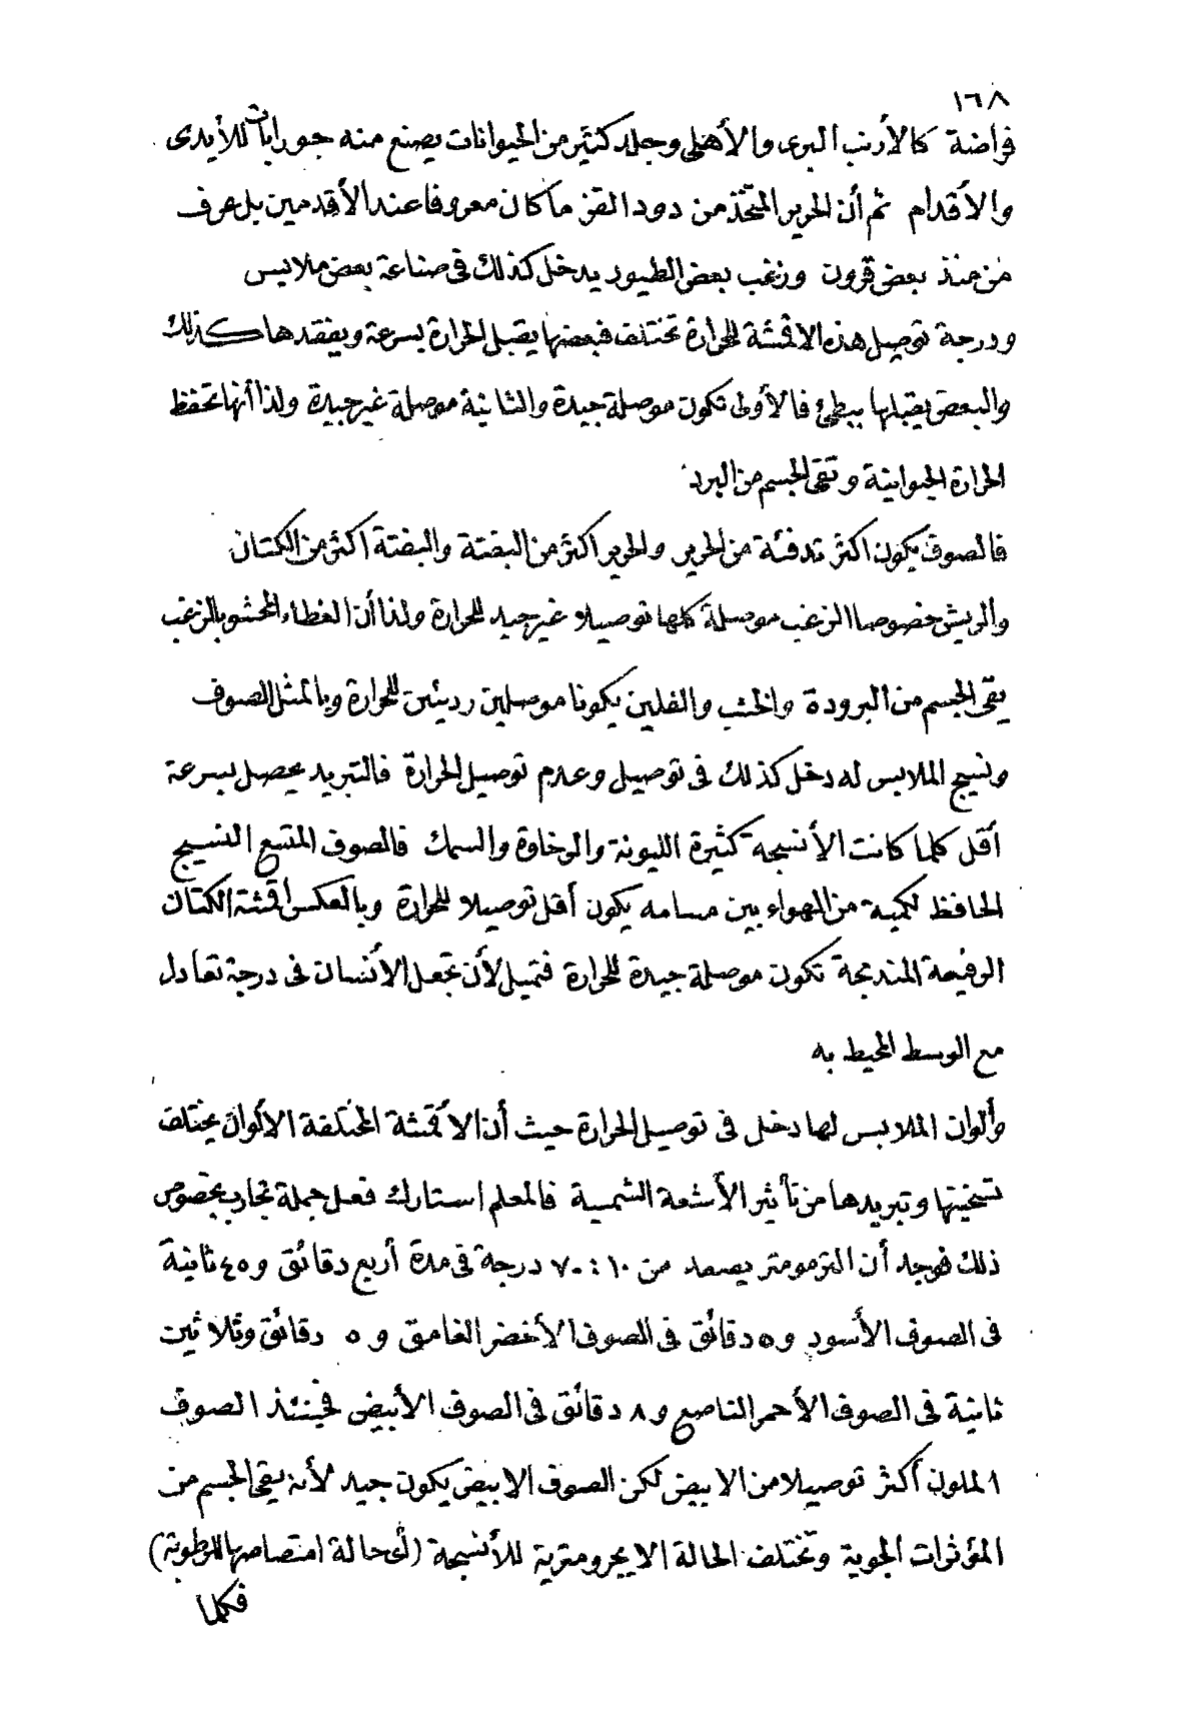 ١٦٨
فراضة كالأرنب البرى والأهلى وجلد كثير من الحيوانات يصنع منه جورابات للأيدى
والأقدام ثم أن الحرير المتخذ من دود القز ما كان معروفا عند الأقدمين بل عرف
من منذ بعض قرون وزغب بعض الطيور يدخل كذلك فى صناعة بعض ملابس
ودرجة توصيل هذه الاقمشة للحرارة تختلف فبعضها يقبل الحرارة بسرعة ويفقدها كذلك
والبعض يقبلها ببطئ فالأولى تكون موصلة جيدة والثانية موصلة غير جيدة ولذا أنها تحفظ
الحرارة الحيوانية وتقى الجسم من البرد
فالصوف يكون اكثر تدفئة من الحرير والحرير اكثر من البفتة والبفتة اكثر من الكتان
والريش خصوصا الزغب موصلة كلها توصيلا غير جيد للحرارة ولذا أن الغطاء المحشو بالزغب
يقى الجسم من البرودة والخشب والفلين يكونا موصلين رديئين للحرارة وبالمثل الصوف
ونسيج الملابس له دخل كذلك فى توصيل وعدم توصيل الحرارة فالتبريد يحصل بسرعة
أقل كلما كانت الأنسجة كثيرة الليونة والرخاوة والسمك فالصوف المتسع النسيج
الحافظ لكمية من الهواء بين مسامه يكون أقل توصيلا للحرارة وبالعكس أقمشة الكتان
الرفيعة المندمجة تكون موصلة جيدة للحرارة فتميل لأن تجعل الأنسان فى درجة تعادل
مع الوسط المحيط به
وألوان الملابس لها دخل فى توصيل الحرارة حيث أن الأقمشة المختلفة الألوان يختلف
تسخينها وتبريدها من تأثير الأشعة الشمسية فالمعلم استارك فعل جملة تجارب بخصوص
ذلك فوجد أن الترمومتر يصعد من ١٠ : ٧٠ درجة فى مدة أربع دقائق و ٤٥ ثانية
فى الصوف الأسود و ٥ دقائق فى الصوف الأخضر الغامق و ٥ دقائق وثلاثين
ثانية فى الصوف الأحمر الناصع و ٨ دقائق فى الصوف الأبيض فحينئذ الصوف
الملون أكثر توصيلا من الابيض لكن الصوف الابيض يكون جيد لأنه يقى الجسم من
المؤثرات الجوية وتختلف الحالة الايجرومترية للأنسجة (أى حالة امتصاصها للرطوبة)
فكلما